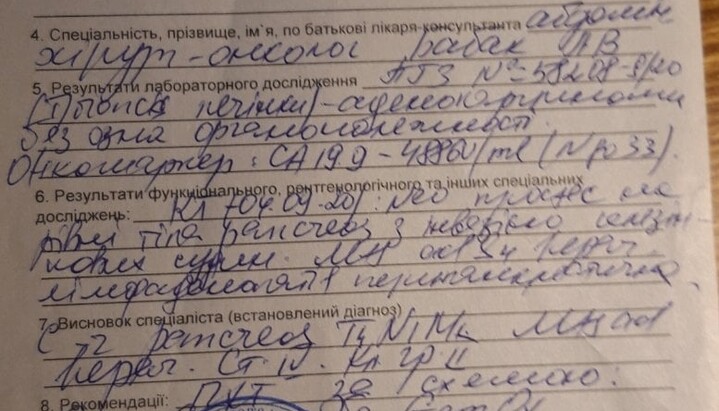 4. Спеціальність, прізвище, ім`я, по батькові лікаря-консультанта абдомін
хірург-онколог Рабак ЛВ
5. Результати лабораторного дослідження ПГЗ №
біопсія печінки) - аденокарциноми
без озна органоналежності.
Онкомаркер: СА 19 9 - /ml (N до 33).
6. Результати функціонального, рентгенологічного та інших спеціальних
досліджень: КТ 04.09.20): Neo процес на
рівні тіла pancreas з інвазією
судин. Mts
лімфаденопатія
7. Висновок спеціаліста (встановлений діагноз)
С-r pancreas T4 N1 M1 Mts
Ст. IV. Кл гр II
8. Рекомендації: ПХТ за схемою: